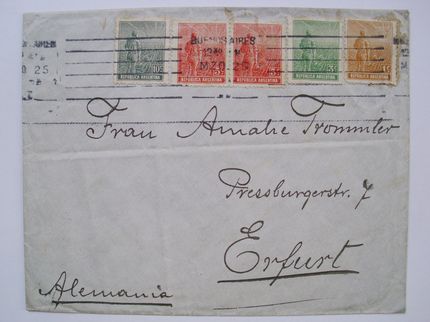 BUENOS AIRES
MZO 25
REPUBLICA ARGENTINA
REPUBLICA ARGENTINA
REPUBLICA ARGENTINA
REPUBLICA ARGENTINA
REPUBLICA ARGENTINA
Frau Amalie Trommler
Pressburgerstr. 7
Erfurt
Alemania